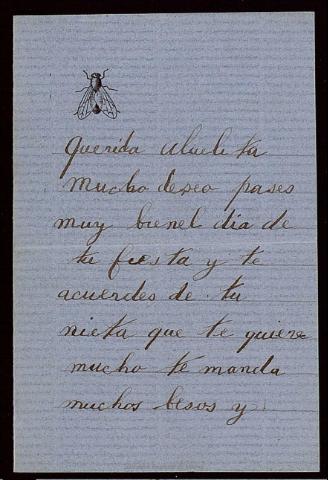 Querida abuelita
mucho deseo pases
muy bien el dia de
tu fiesta y te
acuerdes de tu
nieta que te quiere
mucho te manda
muchos besos y